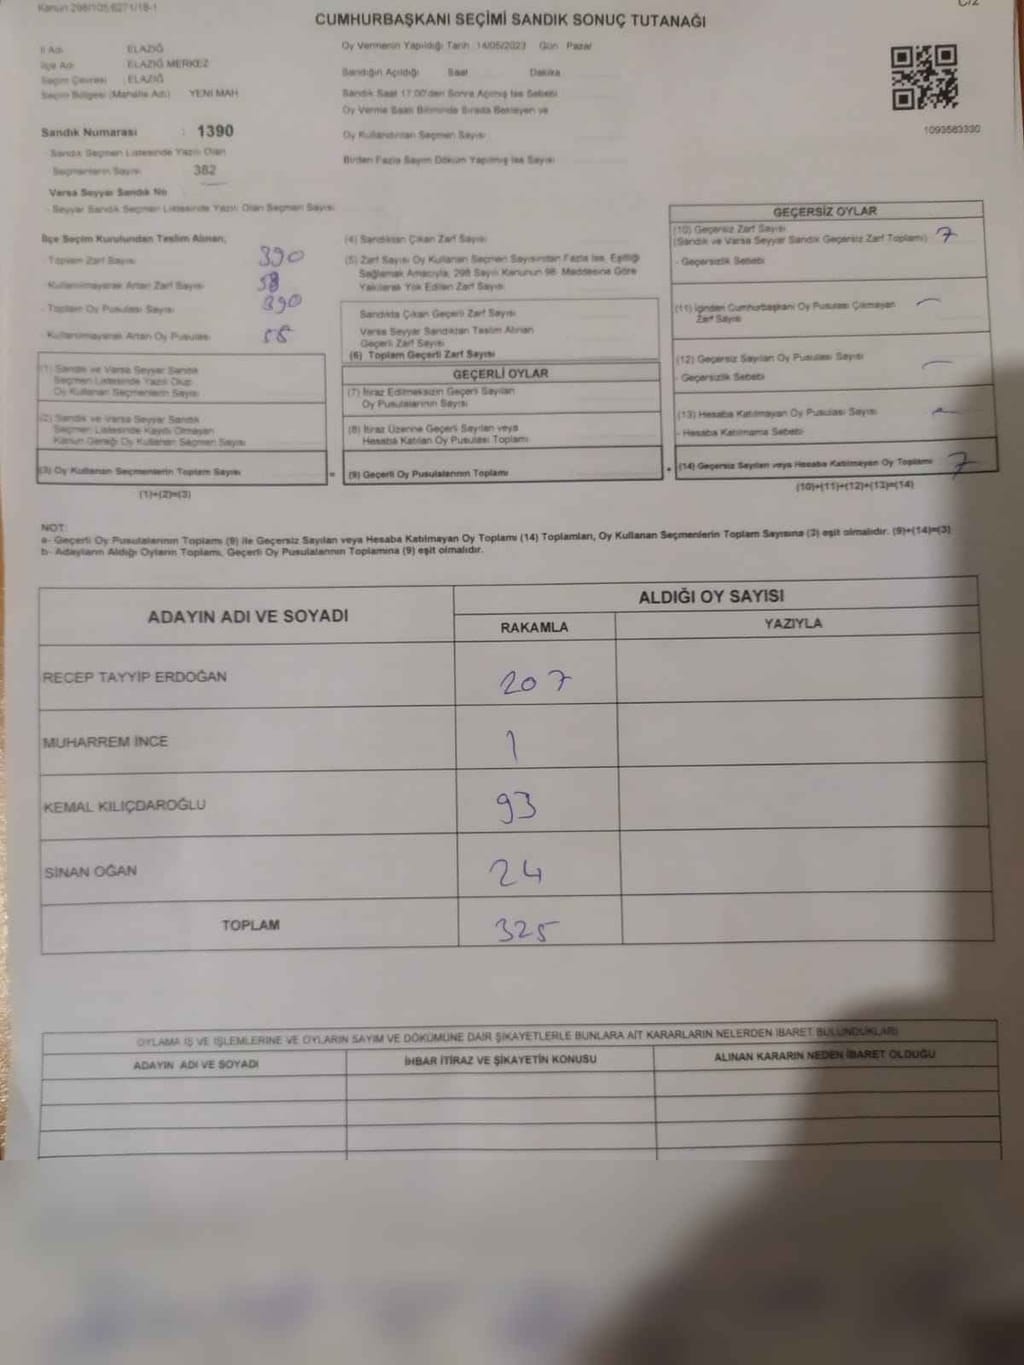 Kanun 298/105
CUMHURBAŞKANI SEÇİMİ SANDIK SONUÇ TUTANAĞI
İl Adı ELAZIĞ
İlçe Adı ELAZIĞ MERKEZ
Seçim Çevresi : ELAZIĞ
Seçim Bölgesi (Mahalle Adı) YENİ MAH
Sandık Numarası : 1390
Sandık Seçmen Listesinde Yazılı Olan
Seçmenlerin Sayısı 382
Varsa Seyyar Sandık No
- Seyyar Sandık Seçmen Listesinde Yazılı Olan Seçmen Sayısı
Oy Vermenin Yapıldığı Tarih : 14/05/2023 Gün : Pazar
Sandığın Açıldığı Saat Dakika
Sandık Saat 17.00'den Sonra Açılmış İse Sebebi
Oy Verme Saati Bitiminde Sırada Bekleyen ve
Oy Kullandırılan Seçmen Sayısı
Birden Fazla Sayım Döküm Yapılmış İse Sayısı
1093583330
İlçe Seçim Kurulundan Teslim Alınan;
- Toplam Zarf Sayısı 390
- Kullanılmayarak Artan Zarf Sayısı 58
- Toplam Oy Pusulası Sayısı 390
- Kullanılmayarak Artan Oy Pusulası 58
(1) Sandık ve Varsa Seyyar Sandık
Seçmen Listesinde Yazılı Olup
Oy Kullanan Seçmenlerin Sayısı
(2) Sandık ve Varsa Seyyar Sandık
Seçmen Listesinde Kayıtlı Olmayan
Kanun Gereği Oy Kullanan Seçmen Sayısı
(3) Oy Kullanan Seçmenlerin Toplam Sayısı
(1)+(2)=(3)
(4) Sandıktan Çıkan Zarf Sayısı
(5) Zarf Sayısı Oy Kullanan Seçmen Sayısından Fazla İse, Eşitliği
Sağlamak Amacıyla, 298 Sayılı Kanunun 98. Maddesine Göre
Yakılarak Yok Edilen Zarf Sayısı
Sandıkta Çıkan Geçerli Zarf Sayısı
Varsa Seyyar Sandıktan Teslim Alınan
Geçerli Zarf Sayısı
(6) Toplam Geçerli Zarf Sayısı
GEÇERLİ OYLAR
(7) İtiraz Edilmeksizin Geçerli Sayılan
Oy Pusulalarının Sayısı
(8) İtiraz Üzerine Geçerli Sayılan veya
Hesaba Katılan Oy Pusulası Toplamı
= (9) Geçerli Oy Pusulalarının Toplamı
GEÇERSİZ OYLAR
(10) Geçersiz Zarf Sayısı
(Sandık ve Varsa Seyyar Sandık Geçersiz Zarf Toplamı) 7
- Geçersizlik Sebebi
(11) İçinden Cumhurbaşkanı Oy Pusulası Çıkmayan
Zarf Sayısı
(12) Geçersiz Sayılan Oy Pusulası Sayısı
- Geçersizlik Sebebi
(13) Hesaba Katılmayan Oy Pusulası Sayısı
- Hesaba Katılmama Sebebi
+ (14) Geçersiz Sayılan veya Hesaba Katılmayan Oy Toplamı 7
(10)+(11)+(12)+(13)=(14)
NOT:
a- Geçerli Oy Pusulalarının Toplamı (9) ile Geçersiz Sayılan veya Hesaba Katılmayan Oy Toplamı (14) Toplamları, Oy Kullanan Seçmenlerin Toplam Sayısına (3) eşit olmalıdır. (9)+(14)=(3)
b- Adayların Aldığı Oyların Toplamı, Geçerli Oy Pusulalarının Toplamına (9) eşit olmalıdır.
ADAYIN ADI VE SOYADI
ALDIĞI OY SAYISI
RAKAMLA YAZIYLA
RECEP TAYYİP ERDOĞAN 207
MUHARREM İNCE 1
KEMAL KILIÇDAROĞLU 93
SİNAN OĞAN 24
TOPLAM 325
OYLAMA İŞ VE İŞLEMLERİNE VE OYLARIN SAYIM VE DÖKÜMÜNE DAİR ŞİKAYETLERLE BUNLARA AİT KARARLARIN NELERDEN İBARET BULUNDUKLARI
ADAYIN ADI VE SOYADI İHBAR İTİRAZ VE ŞİKAYETİN KONUSU ALINAN KARARIN NEDEN İBARET OLDUĞU